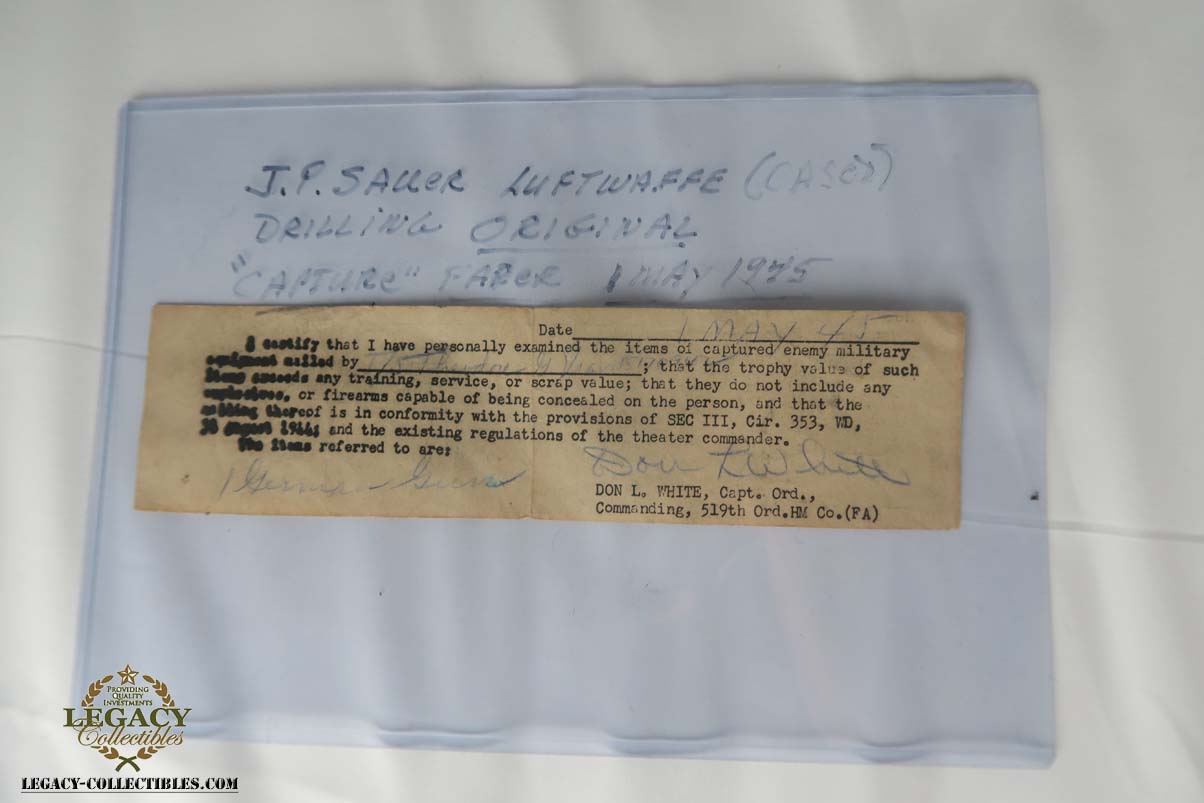 J.P. SAUER LUFTWAFFE (CASED)
DRILLING ORIGINAL
"CAPTURE" PAPER 1 MAY 1945
Date 1 MAY 45
I certify that I have personally examined the items of captured enemy military
equipment mailed by ; that the trophy value of such
items exceeds any training, service, or scrap value; that they do not include any
explosives, or firearms capable of being concealed on the person, and that the
mailing thereof is in conformity with the provisions of SEC III, Cir. 353, WD,
August 1944; and the existing regulations of the theater commander.
The items referred to are:
1 German Gun
Don L White
DON L. WHITE, Capt. Ord.,
Commanding, 519th Ord.HM Co.(FA)
PROVIDING
QUALITY
INVESTMENTS
LEGACY
Collectibles
LEGACY-COLLECTIBLES.COM